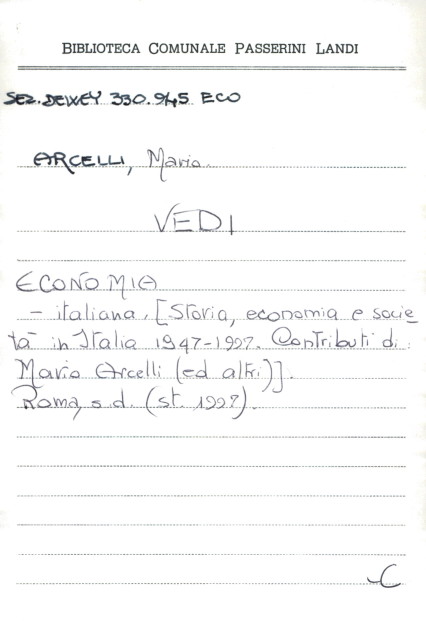 BIBLIOTECA COMUNALE PASSERINI LANDI
SEZ. DEWEY 330.945 ECO
ARCELLI, Mario.
VEDI
ECONOMIA
- italiana. [Storia, economia e socie
tà in Italia 1947-1997. Contributi di:
Mario Arcelli (ed altri)].
Roma, s.d. (st. 1997).
C